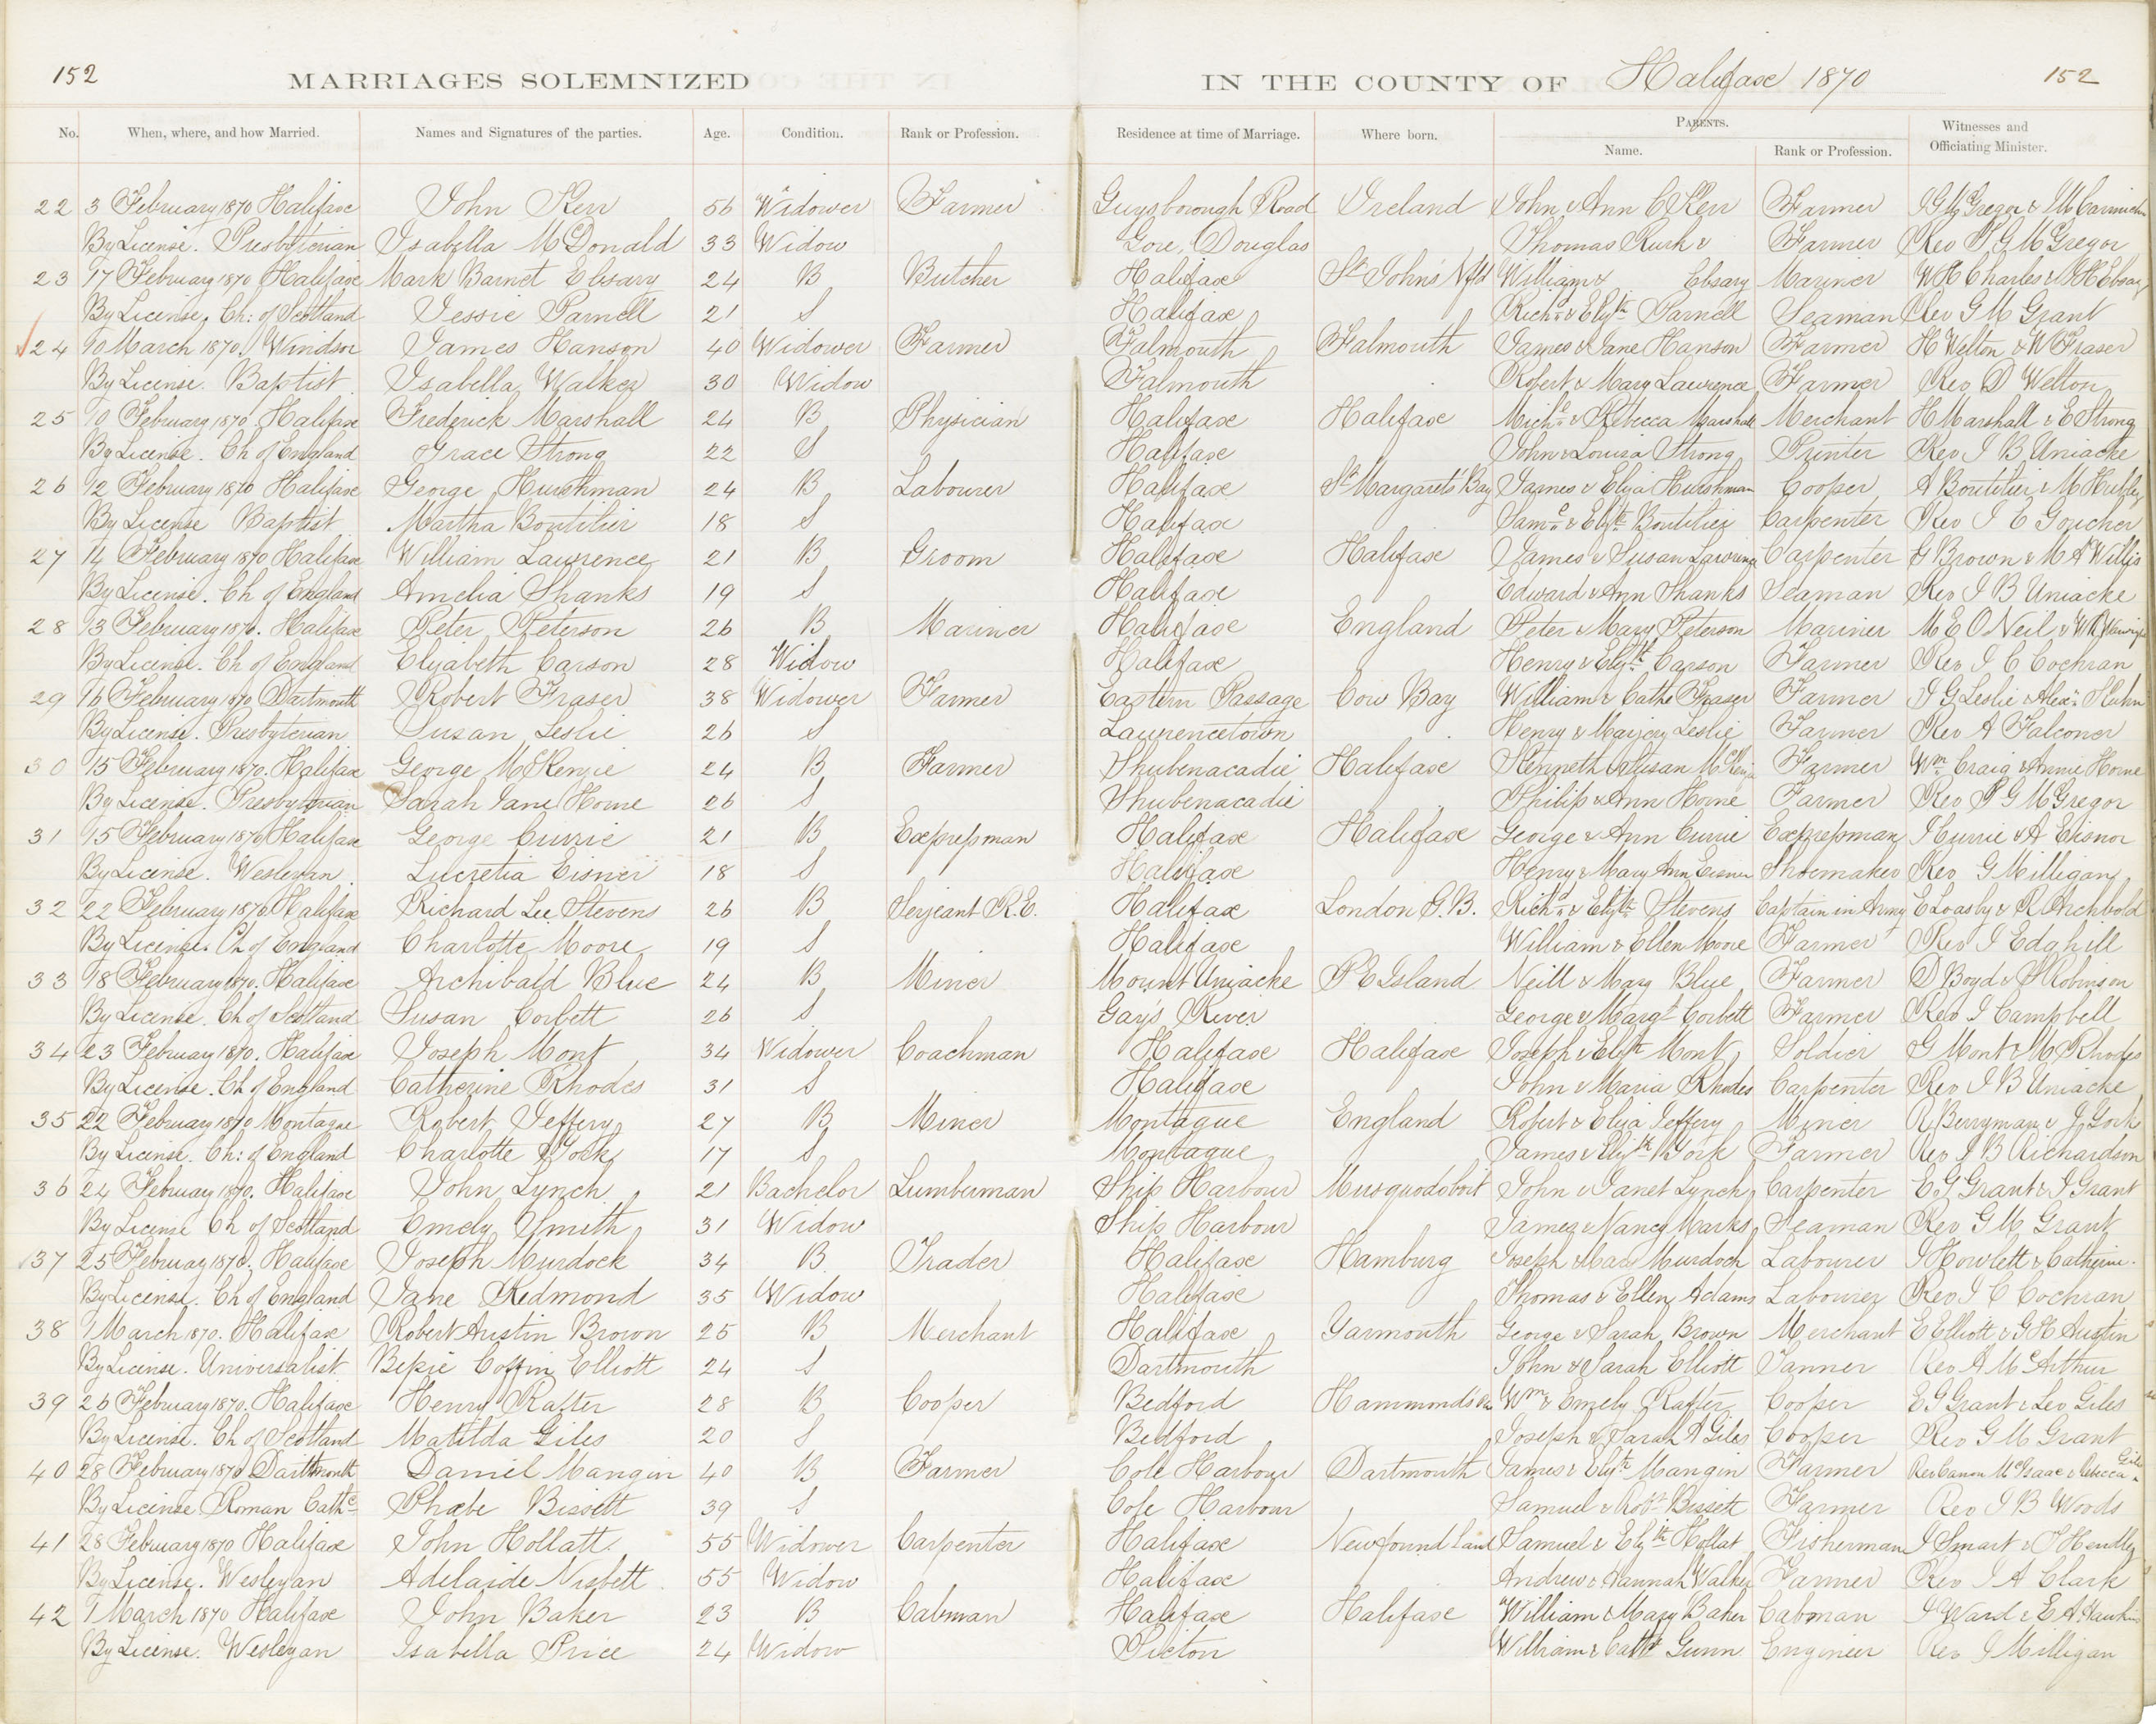 152 MARRIAGES SOLEMNIZED IN THE COUNTY OF Halifax 1870 152
No. When, where, and how Married. Names and Signatures of the parties. Age. Condition. Rank or Profession. Residence at time of Marriage. Where born. PARENTS. Name. Rank or Profession. Witnesses and Officiating Minister.
22 3 February 1870 Halifax John Kerr 56 Widower Farmer Guysborough Road Ireland John & Ann C Kerr Farmer
By License. Presbyterian Isabella McDonald 33 Widow Gore, Douglas Thomas Rurk & Farmer Rev P G McGregor
23 17 February 1870 Halifax Mark Barnet Ebsary 24 B Butcher Halifax St John's Nfld William & Ebsary Mariner W H Charles & M H Ebsary
By License, Ch: of Scotland Jessie Parnell 21 S Halifax Richd & Elizth Parnell Seaman Rev G M Grant
24 10 March 1870. Windsor James Hanson 40 Widower Farmer Falmouth Falmouth James & Jane Hanson Farmer H Welton & W Fraser
By License. Baptist. Isabella Walker 30 Widow Falmouth Robert & Mary Lawrence Farmer Rev D Welton
25 10 February 1870. Halifax Frederick Marshall 24 B Physician Halifax Halifax Michl & Rebecca Marshall Merchant H Marshall & E Strong
By License. Ch of England Grace Strong 22 S Halifax John & Louisa Strong Printer Rev J B Uniacke
26 12 February 1870 Halifax George Hurshman 24 B Labourer Halifax St Margarets Bay James & Eliza Hurshman Cooper A Boutilier & M Hubley
By License Baptist Martha Boutilier 18 S Halifax Saml & Elizth Boutilier Carpenter Rev J E Goucher
27 14 February 1870 Halifax William Lawrence 21 B Groom Halifax Halifax James & Susan Lawrence Carpenter G Brown & M A Willis
By License. Ch of England Amelia Shanks 19 S Halifax Edward & Ann Shanks Seaman Rev J B Uniacke
28 13 February 1870. Halifax Peter Peterson 26 B Mariner Halifax England Peter & Mary Peterson Mariner M E O Neil &
By License. Ch of England Elizabeth Carson 28 Widow Halifax Henry & Elizth Carson Farmer Rev J C Cochran
29 16 February 1870 Dartmouth Robert Fraser 38 Widower Farmer Eastern Passage Cow Bay William & Cathe Fraser Farmer J G Leslie & Alexr Kuhn
By License. Presbyterian Susan Leslie 26 S Lawrencetown Henry & Marjery Leslie Farmer Rev A Falconer
30 15 February 1870. Halifax George McKenzie 24 B Farmer Shubenacadie Halifax Kenneth & Susan McKenzie Farmer Wm Craig & Annie Horne
By License. Presbyterian Sarah Jane Horne 26 S Shubenacadie Philip & Ann Horne Farmer Rev P G McGregor
31 15 February 1870 Halifax George Currie 21 B Expressman Halifax Halifax George & Ann Currie Expressman J Currie & A Eisnor
By License. Wesleyan. Lucretia Eisner 18 S Halifax Henry & Mary Ann Eisner Shoemaker Rev G Milligan
32 22 February 1870. Halifax Richard Lee Stevens 26 B Serjeant R.E. Halifax London G.B. Richd & Elizth Stevens Captain in Army E Loasby & R Archbold
By License. Ch of England Charlotte Moore 19 S Halifax William & Ellen Moore Farmer Rev J Edghill
33 18 February 1870. Halifax Archibald Blue 24 B Miner Mount Uniacke P E Island Neill & Mary Blue Farmer D Boyd & S Robinson
By License. Ch of Scotland Susan Corbett 26 S Gay's River George & Margt Corbett Farmer Rev J Campbell
34 23 February 1870. Halifax Joseph Mont 34 Widower Coachman Halifax Halifax Joseph & Elizth Mont Soldier G Mont & M Rhodes
By License. Ch of England Catherine Rhodes 31 S Halifax John & Maria Rhodes Carpenter Rev J B Uniacke
35 22 February 1870 Montague Robert Jeffery 27 B Miner Montague England Robert & Eliza Jeffery Miner R Berryman & J York
By License. Ch: of England Charlotte York 17 S Montague James & Elizth York Farmer Rev J B Richardson
36 24 February 1870. Halifax John Lynch 21 Bachelor Lumberman Ship Harbour Musquodoboit John & Janet Lynch Carpenter E G Grant & J Grant
By License Ch of Scotland Emely Smith 31 Widow Ship Harbour James & Nancy Marks Seaman Rev G M Grant
37 25 February 1870. Halifax Joseph Murdock 34 B. Trader Halifax Hamburg Joseph & Murdoch Labourer J Howlett & Catherine.
By License. Ch of England Jane Redmond 35 Widow Halifax Thomas & Ellen Adams Labourer Rev J C Cochran
38 1 March 1870. Halifax Robert Austin Brown 25 B Merchant Halifax Yarmouth George & Sarah Brown Merchant E Elliott & G H Austin
By License. Universalist. Bessie Coffin Elliott 24 S Dartmouth John & Sarah Elliott Tanner Rev A McArthur
39 26 February 1870. Halifax Henry Rafter 28 B Cooper Bedford Hammond's Wm & Emely Rafter Cooper E G Grant & Lev Giles
By License. Ch of Scotland Matilda Giles 20 S Bedford Joseph & Sarah A Giles Cooper Rev G M Grant
40 28 February 1870 Dartmouth Daniel Mangin 40 B Farmer Cole Harbour Dartmouth James & Elizth Mangin Farmer Rev Canon McIsaac & Rebecca
By License Roman Cathc Phœbe Bissett 39 S Cole Harbour Samuel & Bissett Farmer Rev J B Woods
41 28 February 1870 Halifax John Hollatt. 55 Widower Carpenter Halifax Newfoundland Samuel & Elizth Hollat Fisherman J Smart & J Hendley
By License. Wesleyan Adelaide Nisbett. 55 Widow Halifax Andrew & Hannah Walker Farmer Rev J A Clark
42 1 March 1870 Halifax John Baker 23 B Cabman Halifax Halifax William & Mary Baker Cabman J Ward & E A
By License. Wesleyan Isabella Price 24 Widow Picton William & Gunn Engineer Rev J Milligan